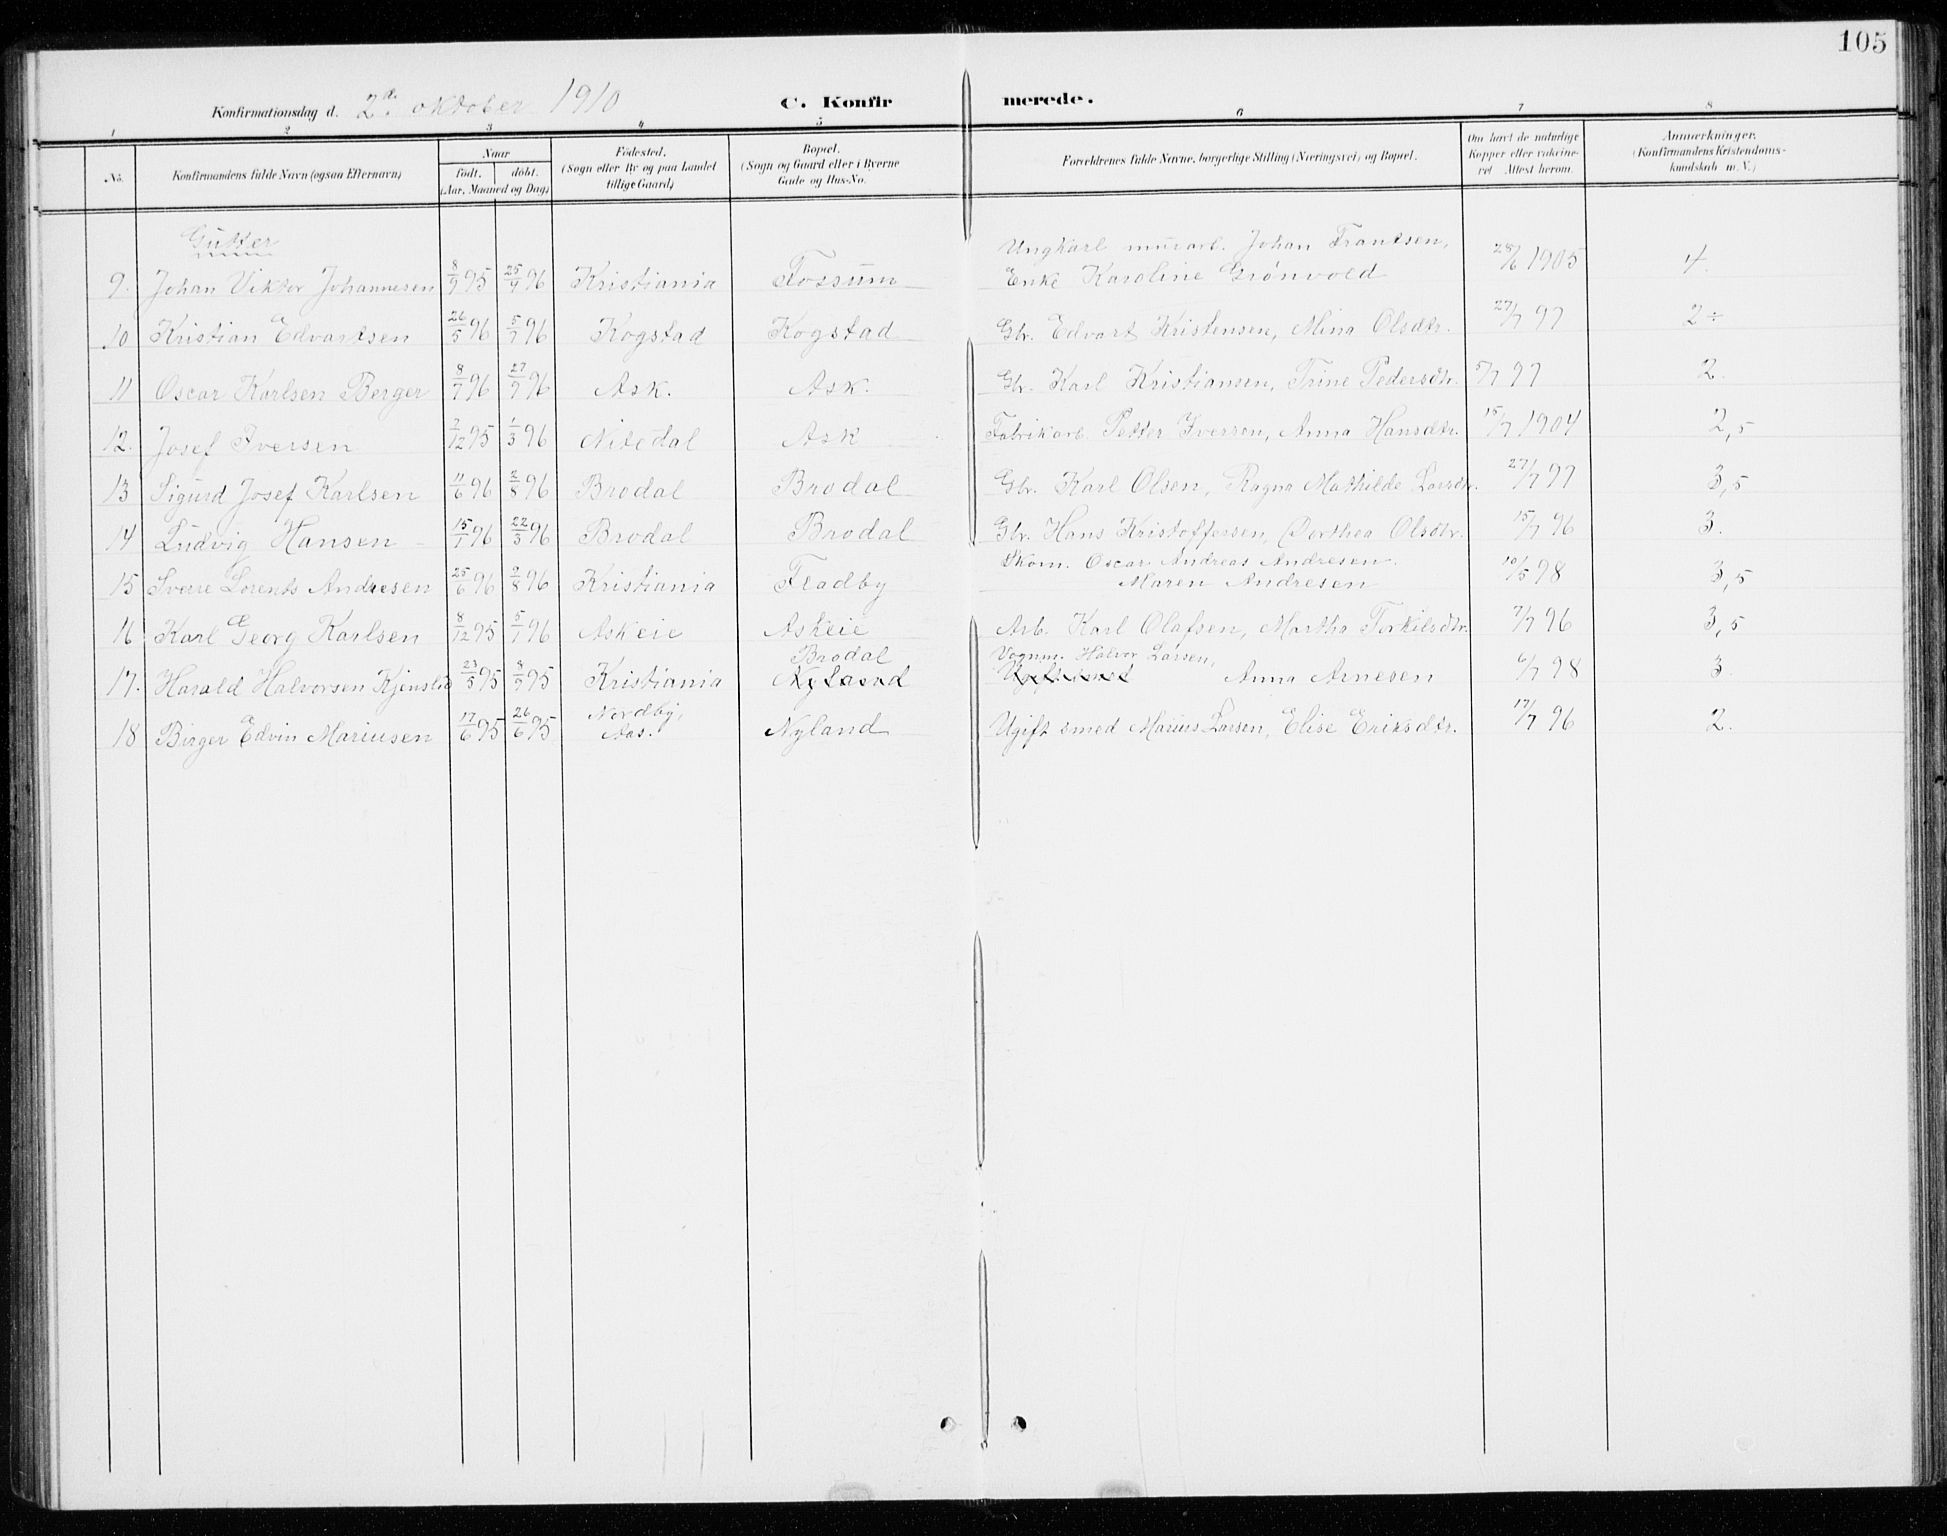 105
Konfirmationsdag d. 2d. oktober 1910 C. Konfir merede.
1 2 3 4 5 6 7 8
No. Konfirmandens fulde Navn (ogsaa Efternavn) Naar født. døbt. (Aar, Maaned og Dag) Fødested. (Sogn eller By og paa Landet tillige Gaard) Bopæl. (Sogn og Gaard eller i Byerne Gade og Hus-No. Forældrenes fulde Navne, borgerlige Stilling (Næringsvei) og Bopæl. Om havt de naturlige Kopper eller vakcineret Attest herom. Anmærkninger. (Konfirmandens Kristendomskundskab m. V.)
Gutter
9. Johan Viktor Johannesen 8/9 95 25/4 96 Kristiania Fossum Ungkarl murarb. Johan Frantsen, Enke Karoline Grønvold 28/6 1905 4.
10 Kristian Edvartsen 26/5 96 5/7 96 Kogstad Kogstad Gbr. Edvart Kristensen, Mina Olsdtr. 27/7 97 2÷
11 Oscar Karlsen Berger 8/7 96 27/9 96 Ask. Ask. Gbr. Karl Kristiansen, Trine Pedersdtr. 5/7 97 2.
12. Josef Iversen 2/12 95 1/3 96 Nitedal Ask Fabrikarb. Petter Iversen, Anna Hansdtr. 15/7 1904 2,5
13 Sigurd Josef Karlsen 11/6 96 2/8 96 Brodal Brodal Gbr. Karl Olsen, Ragna Mathilde Larsdtr. 27/7 97 3,5
14 Ludvig Hansen 15/1 96 22/3 96 Brodal Brodal Gbr. Hans Kristoffersen, Dorthea Olsdtr. 15/7 96 3.
15 Sverre Lorents Andresen 25/6 96 2/8 96 Kristiania Fladby Skom. Oscar Andreas Andresen. Maren Andresen 10/5 98 3,5
16 Karl Georg Karlsen 8/12 95 5/1 96 Askeie Askeie Arb. Karl Olafsen, Martha Torkilsdtr. 7/7 96 3,5
17. Harald Halvorsen Kjenstad 23/5 95 8/9 95 Kristiania Brodal Nyland Vognm. Halvor Larsen, Ugift smed Anna Arnesen 6/7 98 3.
18 Birger Edvin Mariusen 17/6 95 26/6 95 Nordby, Aas. Nyland Ugift smed Marius Larsen, Elise Eriksdtr. 17/7 96 2.